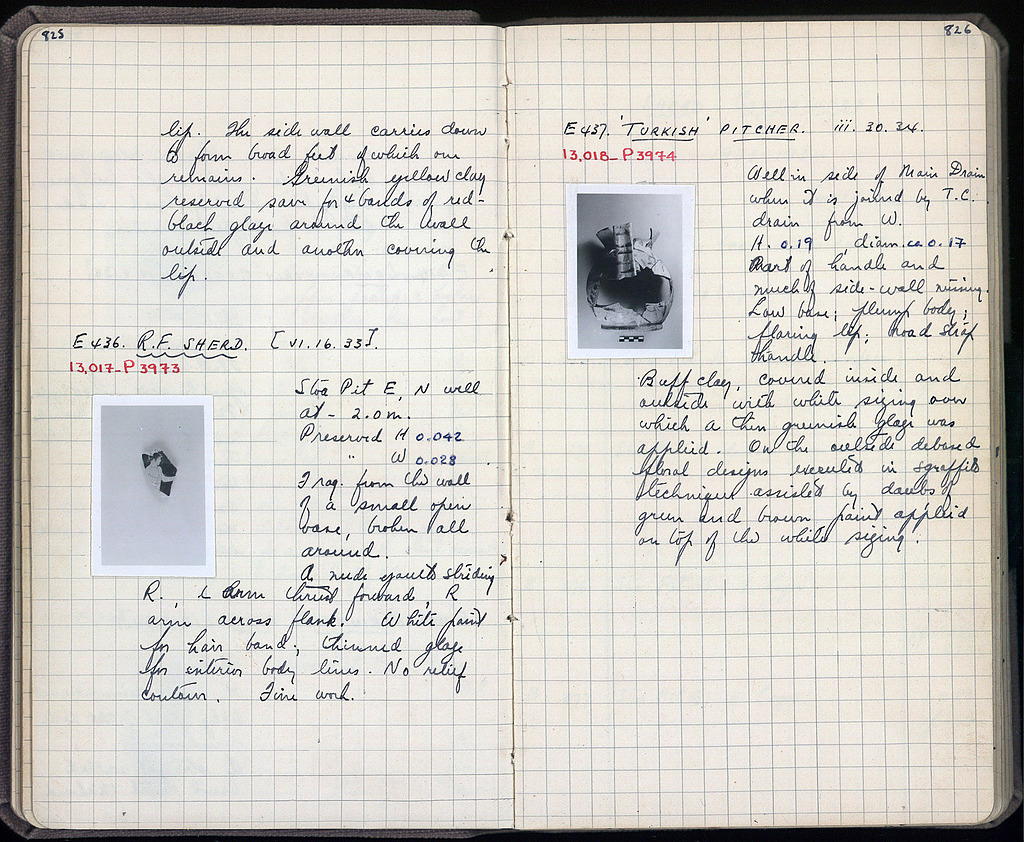 825
lip. The side wall carries down
to form broad feet of which one
remains. Greenish yellow clay
reserved save for 4 bands of red-
black glaze around the wall
outside and another covering the
lip.
E 436. R.F. SHERD. [VI. 16. 33].
13,017-P 3973
Stoa Pit E, N well
at - 2.0 m.
Preserved H 0.042
" W 0.028
Frag. from the wall
of a small open
vase, broken all
around.
A nude youth striding
R., L arm thrust forward, R
arm across flank. White paint
for hair band; thinned glaze
for interior body lines. No relief
contour. Fine work.
826
E 437. 'TURKISH' PITCHER. iii. 30. 34.
13,018-P 3974
Well in side of Main Drain
when it is joined by T.C.
drain from W.
H. 0.19, diam. ca 0.17
Part of handle and
much of side-wall missing.
Low base; plump body;
flaring lip; broad strap
handle.
Buff clay, covered inside and
outside with white sizing over
which a thin greenish glaze was
applied. On the outside debased
floral designs executed in sgraffito
technique assisted by daubs of
green and brown paint applied
on top of the white sizing.